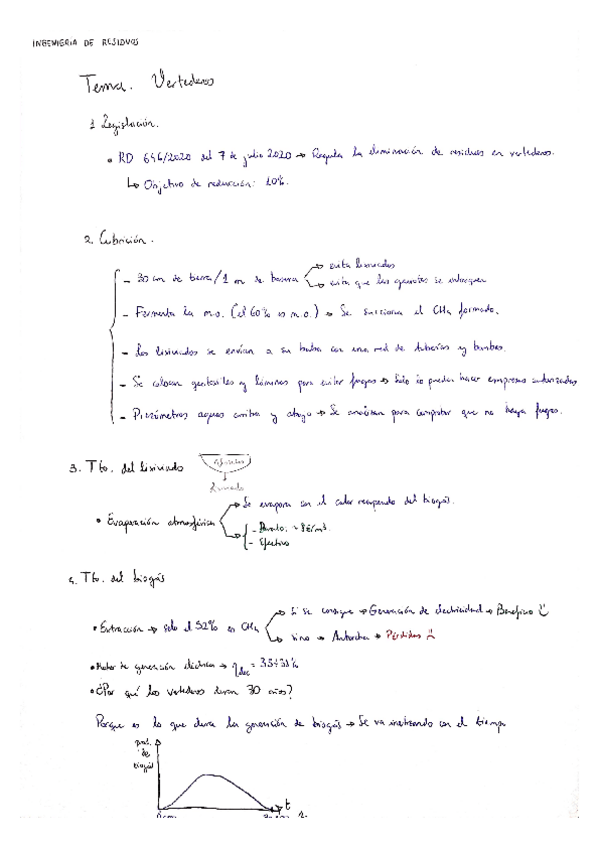 INGENIERIA DE RESIDUOS
Tema. Vertederos
1 Legislación.
• RD 646/2020 del 7 de julio 2020 → Regula la eliminación de residuos en vertederos.
↳ Objetivo de reducción: 10%.
2. Cubrición.
- 30 cm de tierra / 1 m de basura → evita lixiviados
→ evita que las gaviotas se
- Fermenta la m.o. (el 60% es m.o.) → Se succiona el CH4 formado.
- Los lixiviados se envían a su balsa con una red de tuberías y bombas.
- Se colocan geotextiles y láminas para evitar fugas → Sólo lo pueden hacer empresas autorizadas
- Piezómetros aguas arriba y abajo → Se analizan para comprobar que no haya fugas.
3. Tto. del lixiviado
• Evaporación atmosférica → Se evapora con el calor recuperado del biogás.
- Barato:
- Efectivo
4. Tto. del biogás
• Extracción → solo el 52% es CH4 → Si se consigue → Generación de electricidad → Beneficio
→ sino → Antorcha → Pérdidas
• Motor de generación eléctrica →
• ¿Por qué los vertederos duran 30 años?
Porque es lo que dura la generación de biogás → Se va con el tiempo
prod.
de
biogás
t